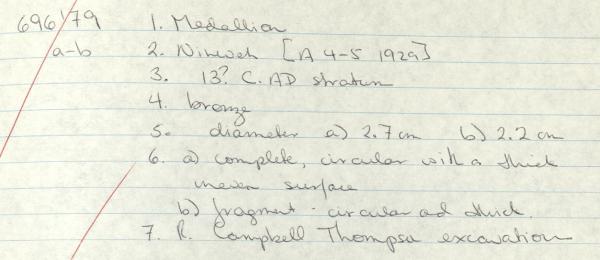 696'79 1. Medallion
a-b 2. Nineveh [A 4-5 1929]
3. 13? C. AD stratum
4. bronze
5. diameter a) 2.7 cm b) 2.2 cm
6. a) complete, circular with a thick
uneven surface
b) fragment - circular and thick.
7. R. Campbell Thompson excavation